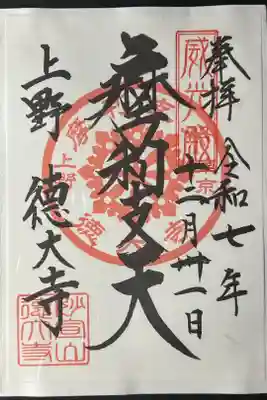 奉拝
令和七年
十二月廿一日
威光殿
摩利支天
上野
徳大寺
上野
徳大寺
妙宣山
徳大寺